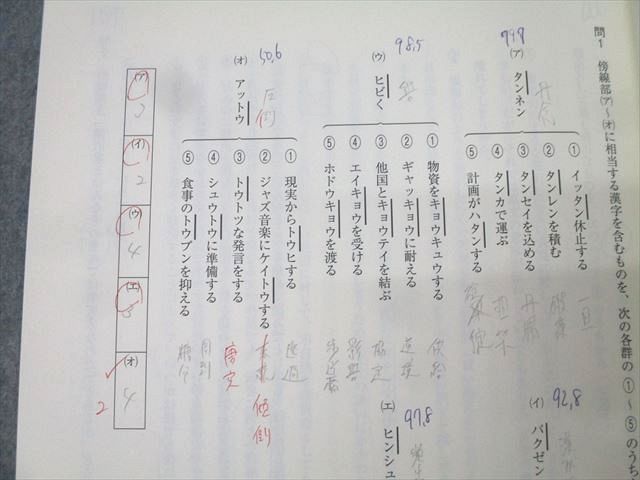 問1 傍線部(ア)~(オ)に相当する漢字を含むものを、次の各群の①~⑤のうち
(ア) タンネン
丹念
① イッタン休止する
一旦
② タンレンを積む
鍛錬
③ タンセイを込める
丹精
④ タンカで運ぶ
担架
⑤ 計画がハタンする
(イ) バクゼン
92,8
(ウ) ヒビく
98,5
響
① 物資をキョウキュウする
供給
② ギャッキョウに耐える
逆境
③ 他国とキョウテイを結ぶ
協定
④ エイキョウを受ける
影響
⑤ ホドウキョウを渡る
歩道橋
(エ) ヒンシュ
97,8
(オ) アットウ
50,6
圧倒
① 現実からトウヒする
逃避
② ジャズ音楽にケイトウする
傾倒
③ トウトツな発言をする
唐突
④ シュウトウに準備する
周到
⑤ 食事のトウブンを抑える
糖分
(ア) 3
(イ) 2
(ウ) 4
(エ) 3
(オ) 4
2